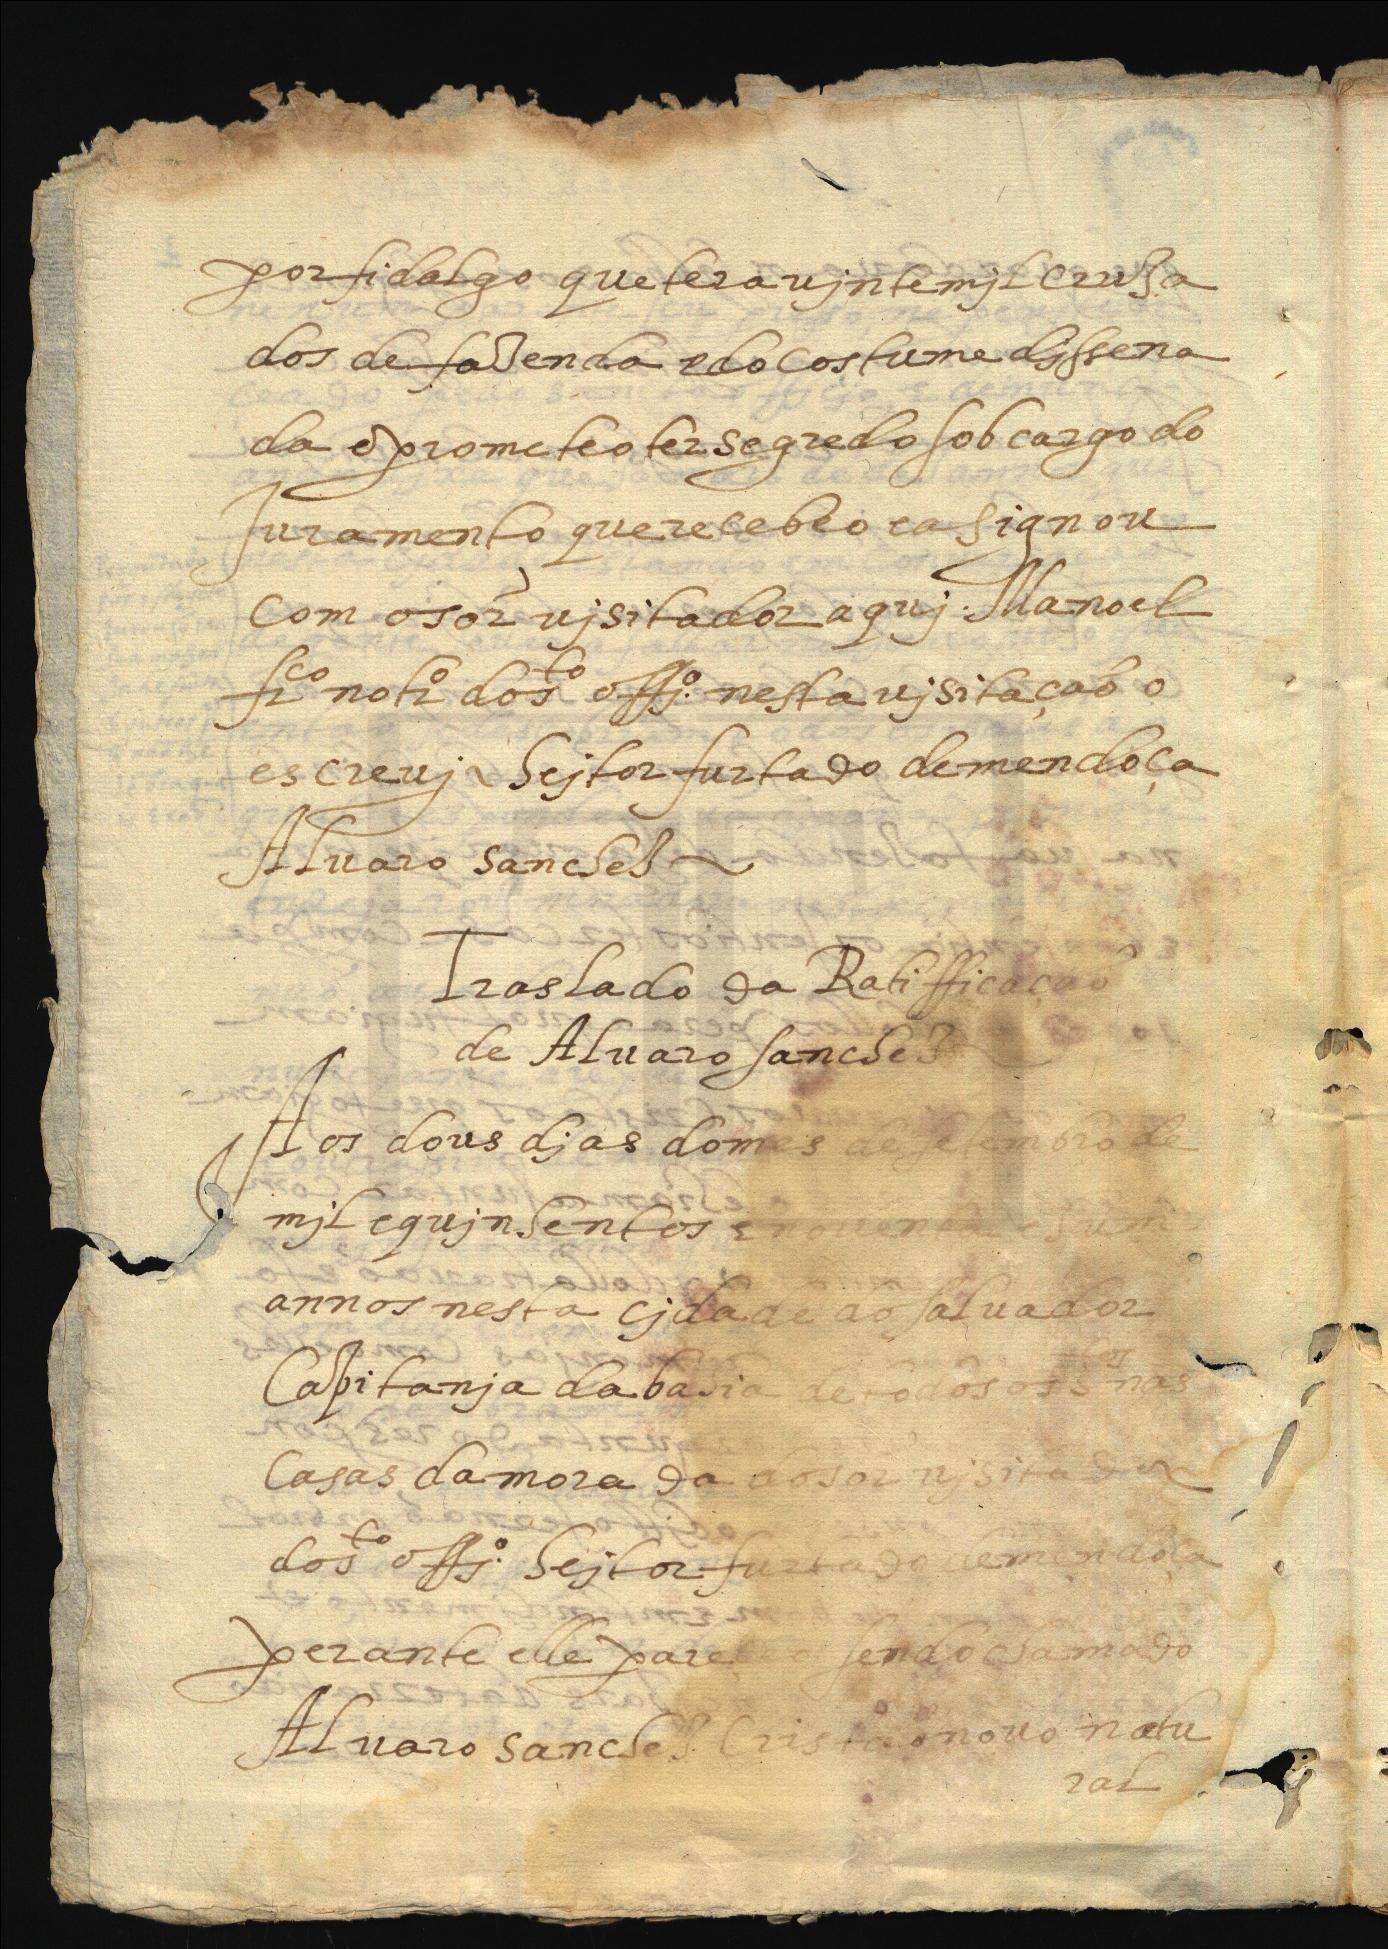 por fidalgo que tera vjnte mjl cruza
dos de fazenda e do costume dissena
da e prometeo ter segredo sob cargo do
Juramento que recebeo e assignou
com o sor vjsitador aquj. Manoel
frco notro do sto offjo. nesta vjsitação o
escrevj Hejtor furtado de mendoça
Alvaro sanchez
Traslado da Ratifficação
de Alvaro sanchez
Aos dous djas do mes de de
mjl e qujnhentos e
annos nesta cjdade do salvador
Capitanja da bahia de todos os s nas
casas da morada do sor vjsitador
do sto offjo. Hejtor furtado de mendoça
perante elle sendo chamado
Alvaro sanchez cristão novo natu
ral